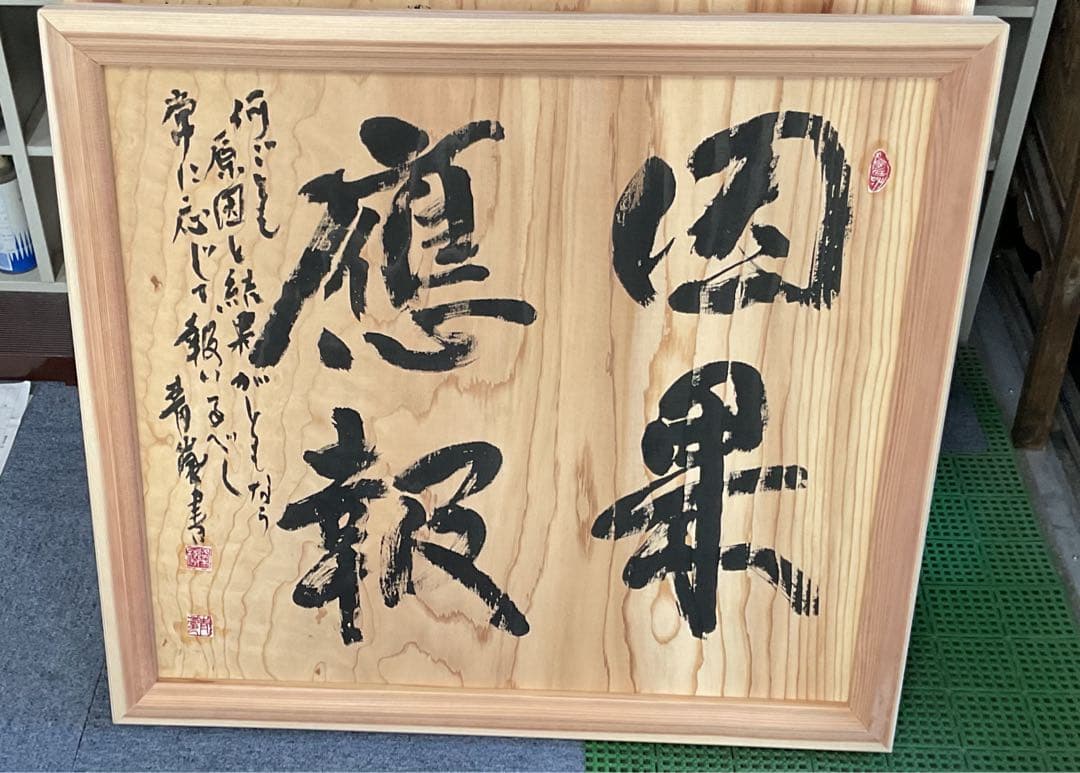 因果
應報
何ごとも
原因と結果がともなう
常に応じて報いるべし
青嵐書